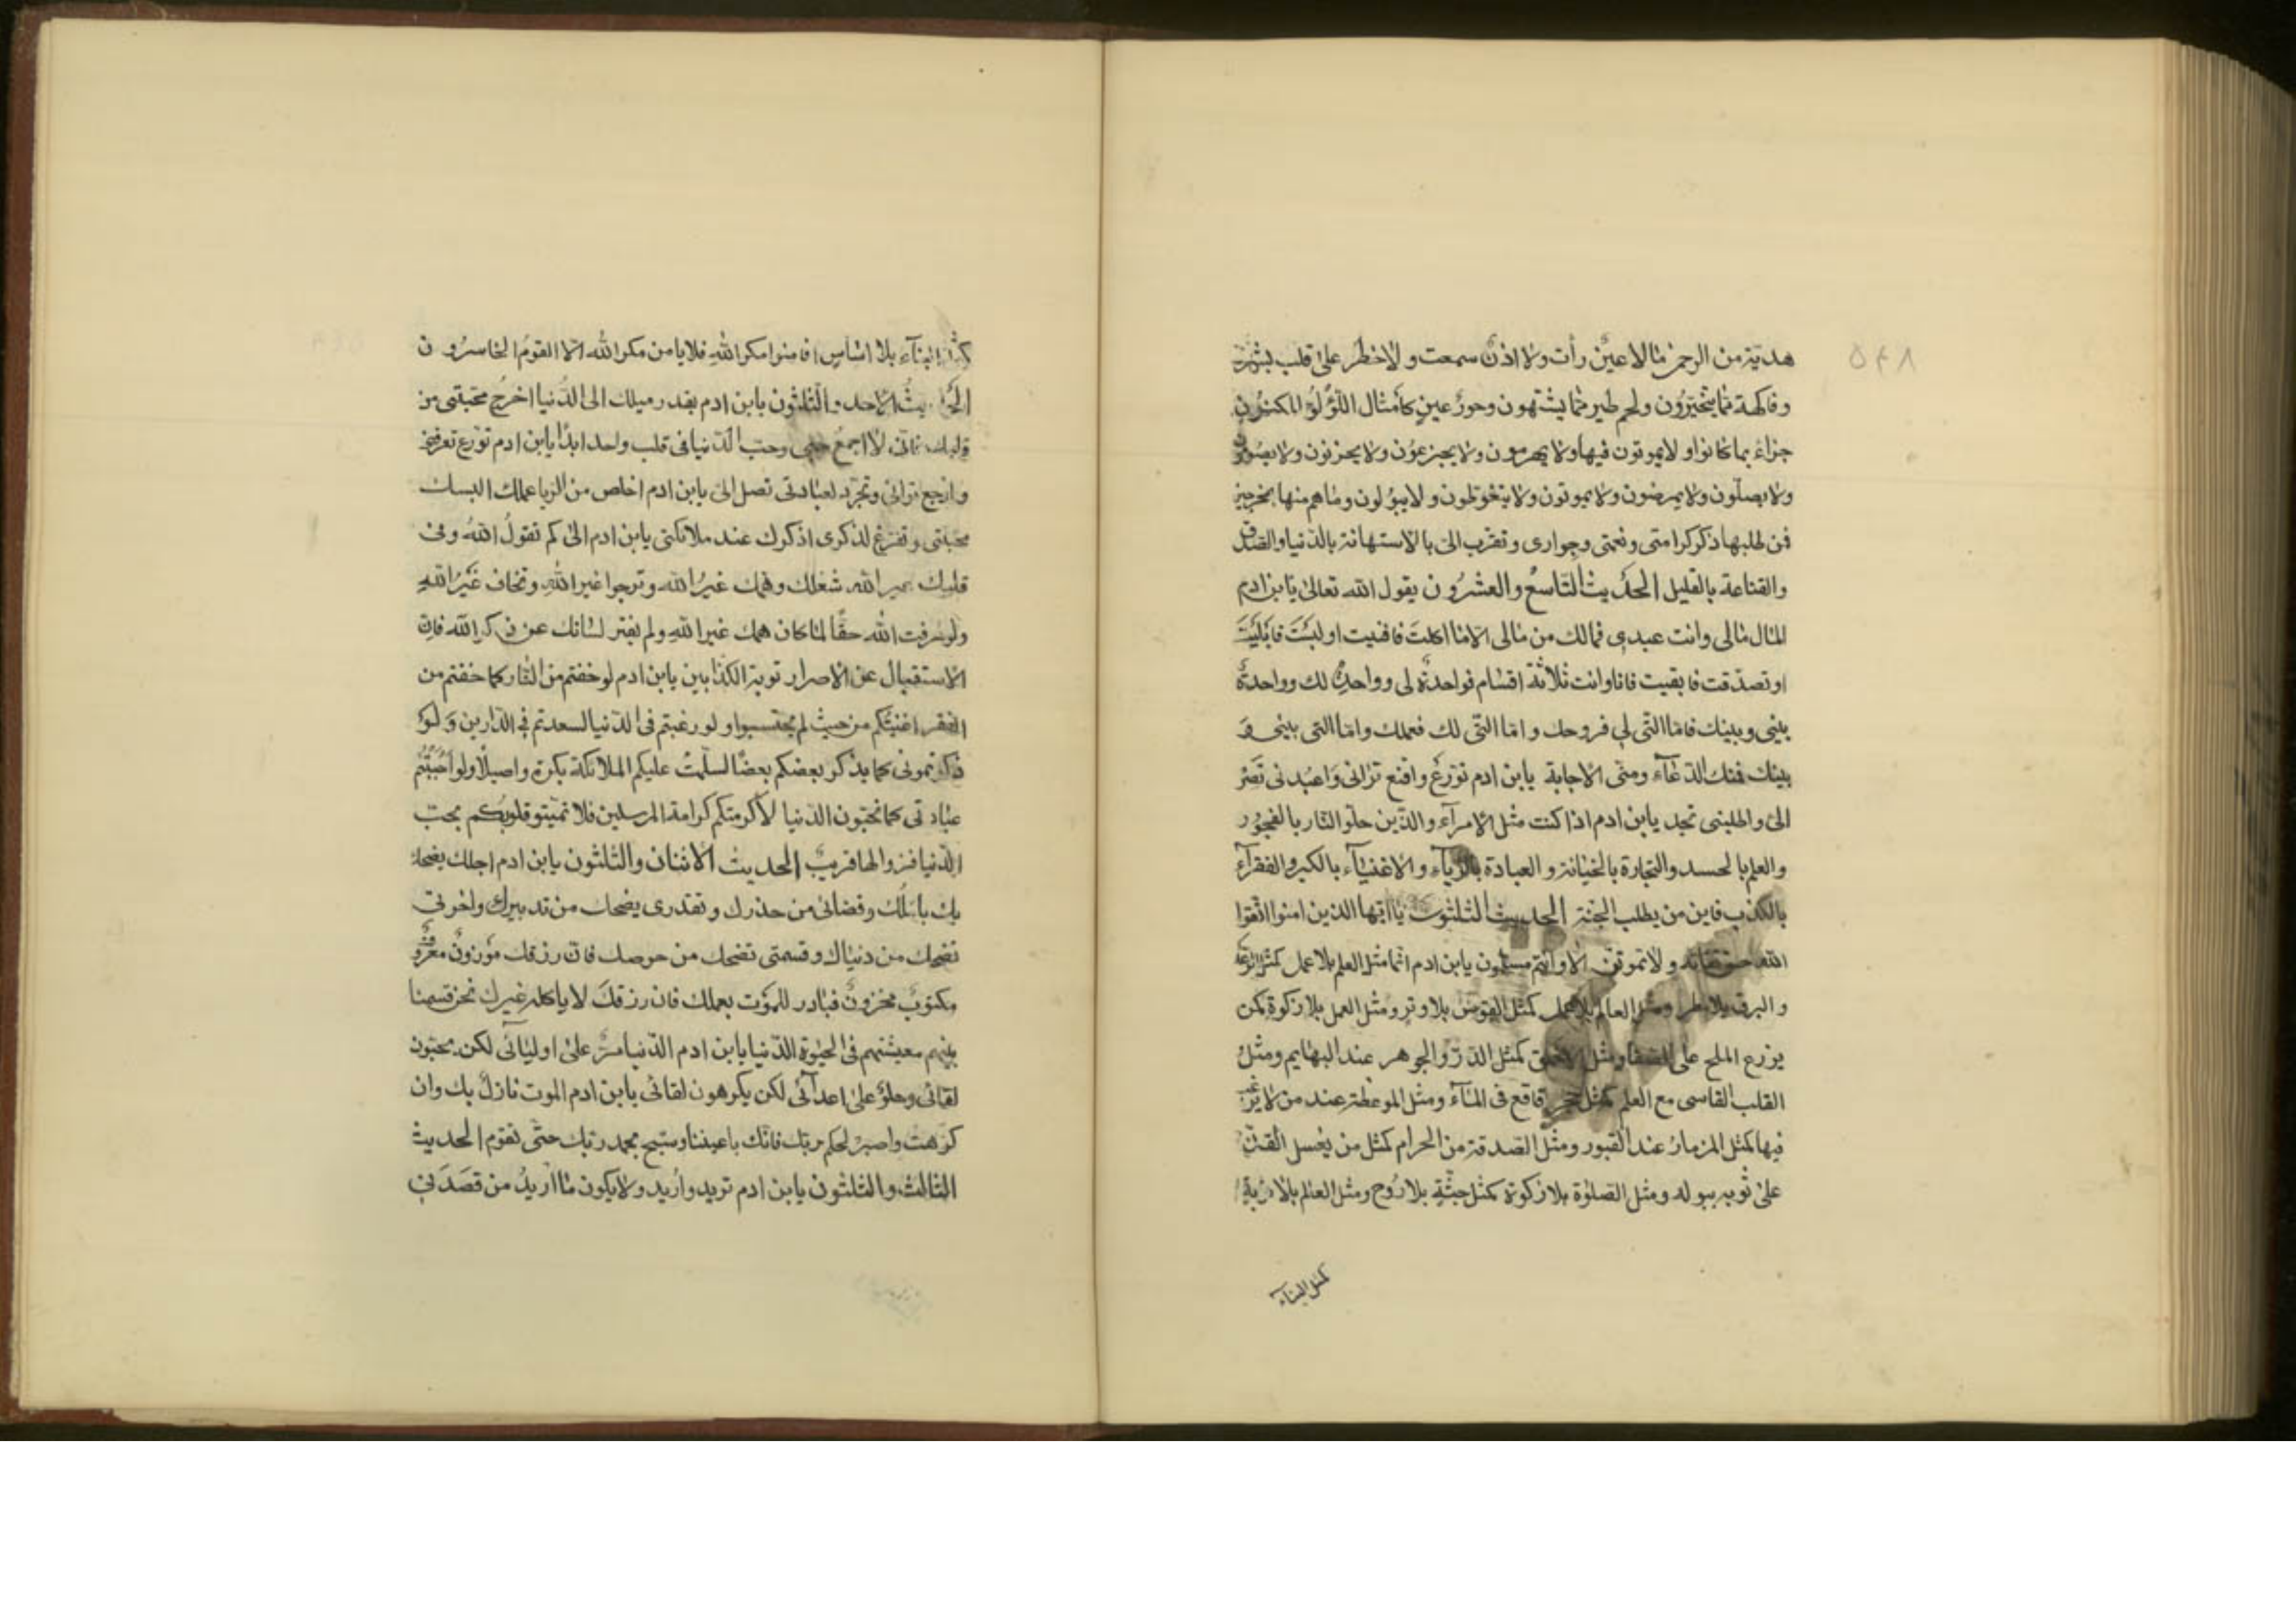 هدية من الرحمن مالا عين رأت ولا اذن سمعت ولا خطر على قلب بشر
وفاكهة مما يتخيرون ولحم طير مما يشتهون وحور عين كأمثال اللؤلؤ المكنون
جزاء بما كانوا و لايموتون فيها ولا يهرمون ولا يجزعون ولا يحزنون ولا يصومون
ولا يصلون ولا يمرضون ولا يموتون ولا يتغوطون ولا يبولون وما هم منها بمخرجين
فمن طلبها ذكر كرامتى ونعمتى وجوارى وتقرب الى بالاستهانة بالدنيا والصدق
والقناعة بالقليل الحديث التاسع والعشرون يقول الله تعالى يا بن ادم
المال مالى وانت عبدى فمالك من مالى الا ما اكلت فافنيت او لبست فابليت
او تصدقت فابقيت فانا وانت ثلاثة اقسام فواحدة لى وواحدة لك وواحدة
بينى وبينك فاما التى لى فروحك واما التى لك فعملك واما التى بينى و
بينك فمنك الدعاء ومنى الاجابة يابن ادم تورع واقنع ترانى واعبدنى تصر
الى واطلبنى تجد يابن ادم اذا كنت مثل الامرآء والذين حلو النار بالفجور
والعلم بالحسد والتجارة بالخيانة و العبادة بالريآء والاغنيآء بالكبر والفقرآء
بالكذب فاين من يطلب الجنة الحديث الثلثون يا ايها الذين امنوا اتقوا
الله حق تقاته ولا تموتن الا وانتم مسلمون يابن ادم انما مثل العلم بلا عمل كمثل الرعد
والبرق بلا مطر ومثل العالم بلا عمل كمثل القوس بلا وتر ومثل العمل بلا زكوة كمن
يزرع الملح على الصفا ومثل كمثل الدر والجوهر عند البهايم ومثل
القلب القاسى مع العلم كمثل حجر قاقع فى المآء ومثل الموعظة عند من لا يرغب
فيها كمثل المزمار عند القبور ومثل الصدقة من الحرام كمثل من يغسل
على ثوبه ببوله ومثل الصلوة بلا زكوة كمثل جثة بلا روح ومثل العالم بلا
كمثل البنآء
كمثل البنآء بلا اساس افامنوا مكر الله فلا يامن مكر الله الا القوم الخاسرون
الحديث الاحد والثلثون يابن ادم بقدر ميلك الى الدنيا اخرج محبتى من
قلبك فانى لا اجمع حبى وحب الدنيا فى قلب واحد ابدا يابن ادم تورع تعرفنى
و ترانى وتجرد لعبادتى تصل الى يابن ادم اخلص من الريا عملك البسك
محبتى وتفرغ لذكرى اذكرك عند ملائكتى يابن ادم الى كم تقول الله وفى
قلبك غير الله شغلك وهمك غير الله وترجوا غير الله وتخاف غير الله
ولو عرفت الله حقا لما كان همك غير الله ولم يفتر لسانك عن ذكر الله فان
الاستقبال عن الاصرار توبة الكذابين يابن ادم لو خفتم من النار كما خفتم من
الفقر اغنيتكم من حيث لم يحتسبوا ولو رغبتم فى الدنيا لسعدتم فى الدارين ولو
ذكرتمونى كما يذكر بعضكم بعضا لسلمت عليكم الملائكة بكرة واصيلا ولو احببتم
عبادتى كما تحبون الدنيا لاكرمتكم كرامة المرسلين فلا تميتو قلوبكم بحب
الدنيا فزوالها قريب الحديث الاثنان والثلثون يابن ادم اجلك يضحك
بك باملك وقضائى من حذرك وتقدرى يضحك من تدبيرك واخرتى
تضحك من دنياك وقسمتى تضحك من حرصك فان رزقك موزون معروف
مكتوب مخزون فبادر للموت بعملك فان رزقك لا ياكله غيرك نحن قسمنا
بينهم معيشتهم فى الحيوة الدنيا يابن ادم الدنيا مر على اوليآئى لكن يحبون
لقائى وحلو على اعدآئى لكن يكرهون لقائى يابن ادم الموت نازل بك وان
كرهت واصبر لحكم ربك فانك باعيننا وسبح بحمد ربك حتى تقوم الحديث
الثالث والثلثون يابن ادم تريد واريد ولا يكون ما اريد من قصدنى